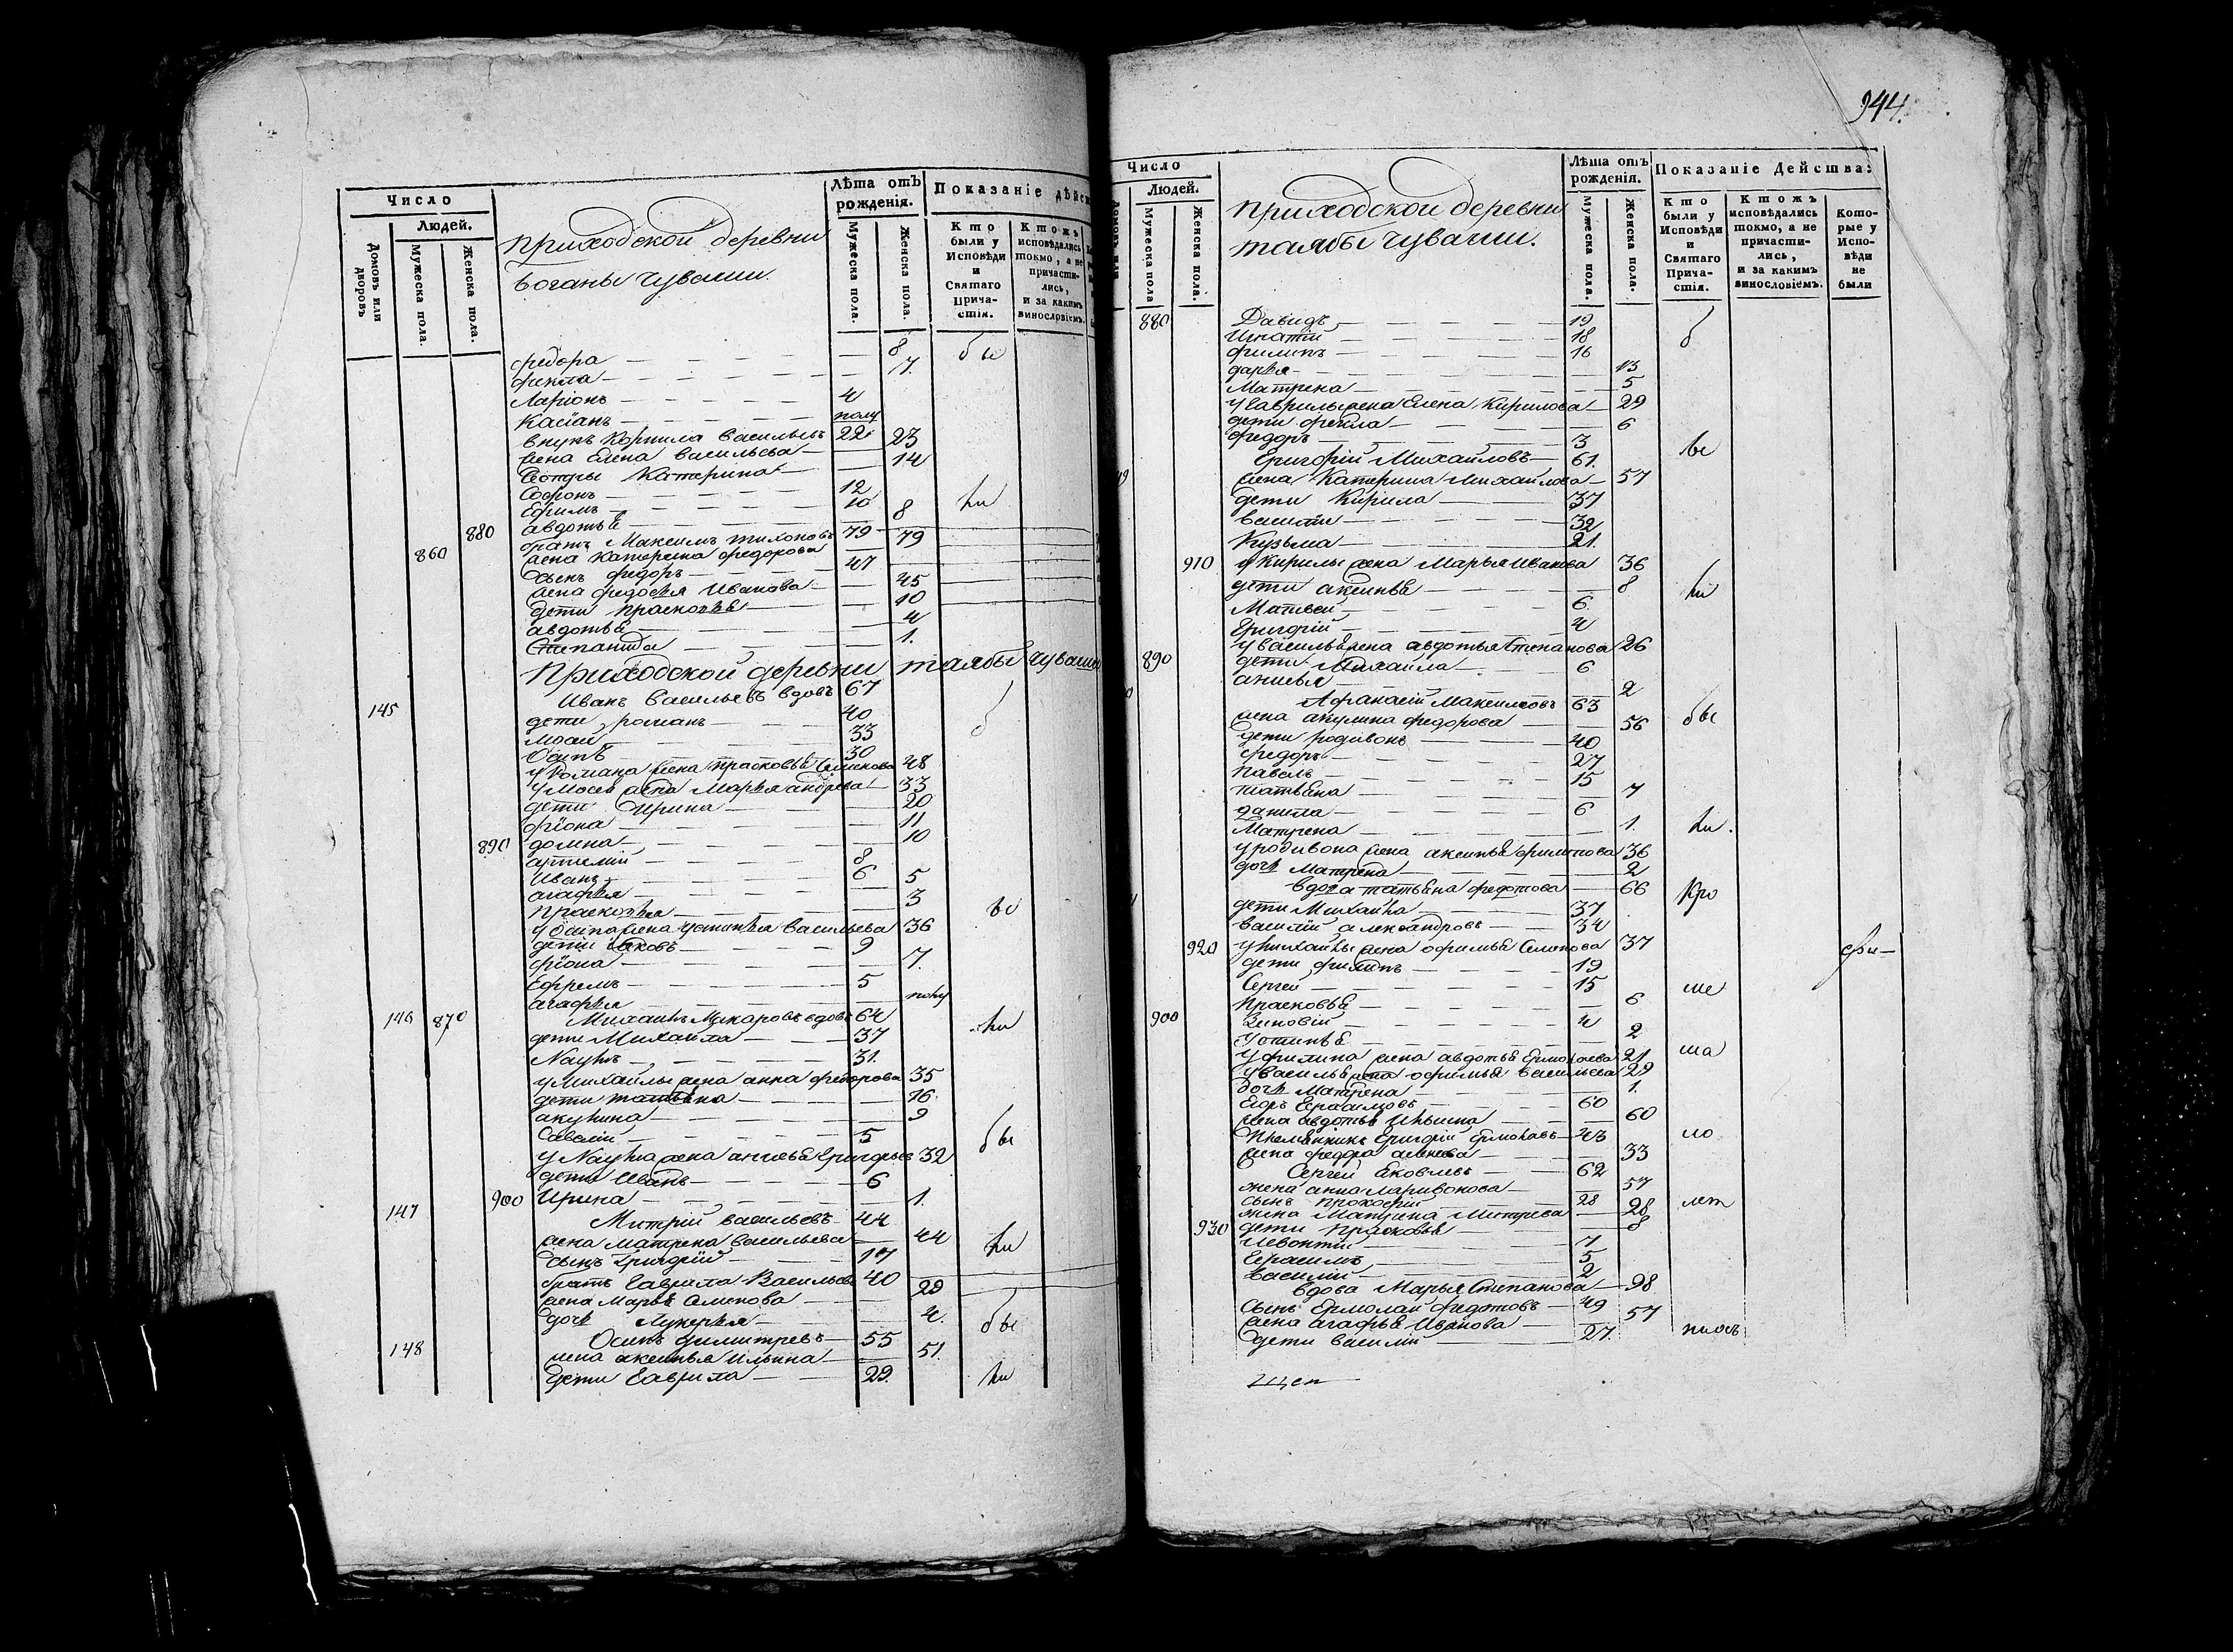 Число
Людей.
Домовъ или дворовъ
Мужеска пола.
Женска пола.
приходской деревни
боганы чуваши.
Лѣта отъ рожденія.
Мужеска пола.
Женска пола.
Показаніе дѣйс
Кто были у Исповѣди и Святаго Прича-стія.
Ктожъ исповѣдались токмо, а не причасти-лись, и за какимъ винословіемъ.
федора 8
фекла 7.
Ларіонъ 4
Касіанъ полу
внукъ Корнила васильевъ 22
жена Елена васильева 23
Сестры Катерина 14
Софронъ 12
Ефимъ 10
880 авдотья 8
860 братъ Максимъ тихоновъ 79
жена катерина федорова 79
сынъ федоръ 47
жена федосья Иванова 45
дети прасковья 10
авдотья 4
Степанида 1.
приходской деревни таябы чуваши
145 Иванъ васильевъ вдовъ 67
дети романъ 40
Мосей 33
Осипъ 30
у Романа жена прасковья Семенова 48
у Мосея жена Марья андреева 33
дети Ирина 20
фіона 11
890 домна 10
артемій 8
Иванъ 6
агафья 5
прасковья 3
у Осипа жена устинья васильева 36
дети Яковъ 9
фіона 7.
Ефремъ 5
агафья полу
146 870 Михаилъ Макаровъ вдовъ 64
дети Михаила 37
Наумъ 31.
у Михайлы жена анна федорова 35
дети татьяна 16
акулина 9
Савелій 5
у Наума жена анисья Григорьев 32
дети Иванъ 6
900 Ирина 1.
147 Митрій васильевъ 44
жена матрена васильева 44
сынъ Григорій 17
братъ Гаврила Васильевъ 40
жена Марья Семенова 29
дочь Лукерья 4.
148 Осипъ димитревъ 55
жена аксинья Ильина 51.
дети Гаврила 29.
944.
Число
Людей.
Мужеска пола
Женска пола.
приходской деревни
таябы чуваши.
Лѣта отъ рожденія.
Мужеска пола.
Женска пола.
Показаніе Дейсшва:
Кто были у Исповѣди и Святаго Прича-стія.
Ктожъ исповѣдались токмо, а не причасти-лись, и за какимъ винословіемъ.
Кото-рые у Испо-вѣди не были
880 Давидъ 19
Игнатій 18
филипъ 16
дарья 13
Матрена 5
у Гаврилы жена Елена Кирилова 29
дети фекла 6
федоръ 3
Григорій Михайловъ 61.
жена Катерина Михайлова 57
дети Кирила 37
василій 32
Кузьма 21.
910 у кирилы жена Марья Иванова 36
дети аксинья 8
Матвей 6
Григорій 4
у василья жена авдотья Степанова 26
890 дети Михайла 6
анисья 2
Афанасій Максимовъ 63
жена акулина федорова 56
дети родивонъ 40
федоръ 27
павелъ 15
татьяна 7
данила 6
Матрена 1.
у родивона жена аксинья филипова 36
дочь Матрена 2
вдова татьяна федотова 66
дети Михайла 37
василій александровъ 34
920 у михайлы жена офимья Семенова 37
дети филипъ 19
Сергей 15
прасковья 6
900 Зиновій 4
Устинья 2
у филипа жена авдотья Ермолаева 21
у василья жена офимья васильева 29
дочь Матрена 1.
Егоръ Герасимовъ 60
жена авдотья Ильина 60
племянникъ Григорій Ермолаевъ 43
жена федора алексеева 33
Сергей Яковлевъ 62
жена анна Ларивонова 57
сынъ прокофій 28
жена Матрена Митрева 28
930 дети прасковья 8
Левонтій 7
Герасимъ 5
василій 2
вдова Марья Степанова 98
сынъ Ермолай федотовъ 49
жена агафья Иванова 57
дети василій 27.